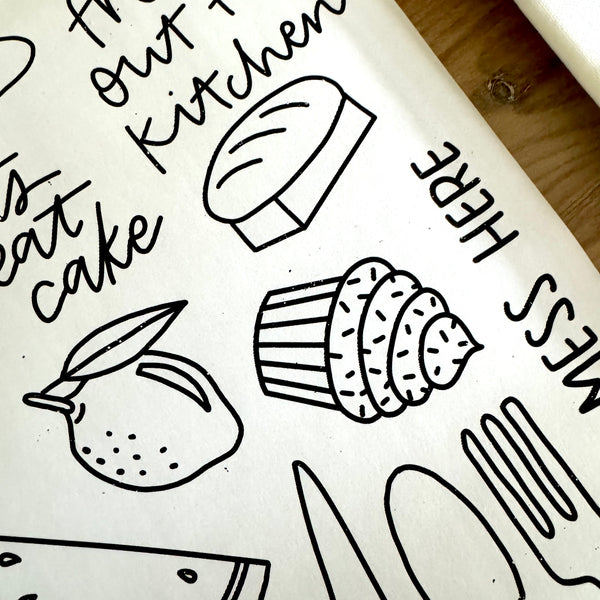 out
kitchen
eat
cake
MESS HERE